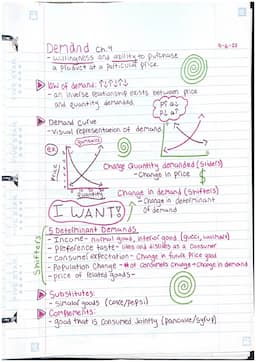 Demand Ch.4
- willingness and ability to purchase
a product at a particular price
law of demand: ↑↓↑↓↑↓
- an inverse relationship exists between price
and quantity demanded
P↑ Q↓
P↓ Q↑
Demand curve
- Visual representation of demand
ex
Price
Quantity
Change Quantity demanded (sliders)
- Change in price $
Change in demand (shifters)
- Change in determinant
of demand
I WANT!
5 Determinant Demands
Shifters
- Income - normal good, inferior good (gucci, walmart)
- Preference taste - likes and dislikes as a consumer
- Consumer expectation - change in future price good
- Population change - # of consumers change → change in demand
- price of related goods -
Substitutes:
- Similar goods (coke/pepsi)
Complements:
- good that is consumed jointly (pancake/syrup)